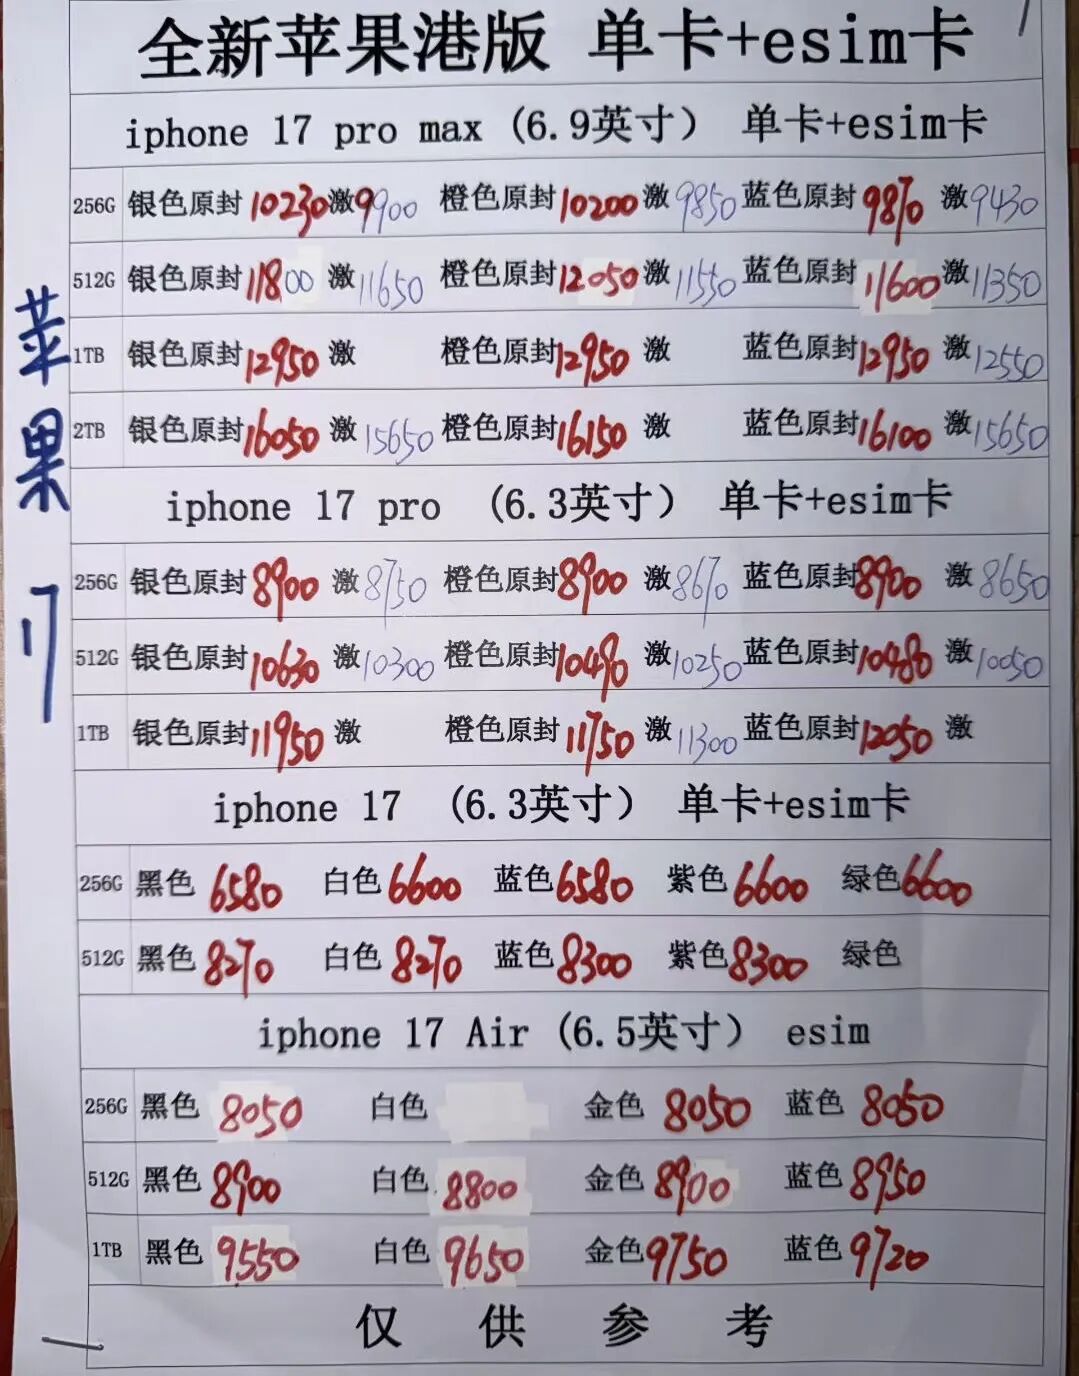 全新苹果港版 单卡+esim卡
iphone 17 pro max (6.9英寸) 单卡+esim卡
256G 银色原封 10230 激 9900 橙色原封 10200 激 9850 蓝色原封 9870 激 9430
512G 银色原封 11800 激 11650 橙色原封 12050 激 11550 蓝色原封 11600 激 11350
1TB 银色原封 12950 激 橙色原封 12950 激 蓝色原封 12950 激 12550
2TB 银色原封 16050 激 15650 橙色原封 16150 激 蓝色原封 16100 激 15650
iphone 17 pro (6.3英寸) 单卡+esim卡
256G 银色原封 8900 激 8750 橙色原封 8900 激 8670 蓝色原封 8900 激 8650
512G 银色原封 10630 激 10300 橙色原封 10490 激 10250 蓝色原封 10480 激 10050
1TB 银色原封 11950 激 橙色原封 11750 激 11300 蓝色原封 12050 激
iphone 17 (6.3英寸) 单卡+esim卡
256G 黑色 6580 白色 6600 蓝色 6580 紫色 6600 绿色 6600
512G 黑色 8270 白色 8270 蓝色 8300 紫色 8300 绿色
iphone 17 Air (6.5英寸) esim
256G 黑色 8050 白色 金色 8050 蓝色 8050
512G 黑色 8900 白色 8800 金色 8900 蓝色 8950
1TB 黑色 9550 白色 9650 金色 9750 蓝色 9720
仅供参考
苹果17